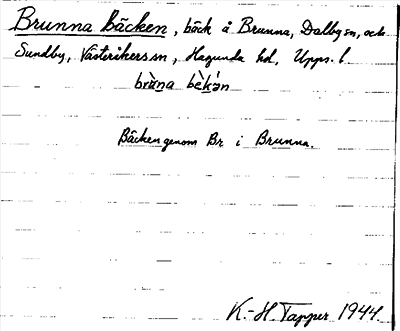 Brunna bäcken, bäck å Brunna, Dalby sn, och
Sundby, Västeråkers sn, Hagunda hd, Upps. l.
brùna bèkən
Bäcken genom Br i Brunna.
K.-H. Tapper 1944.